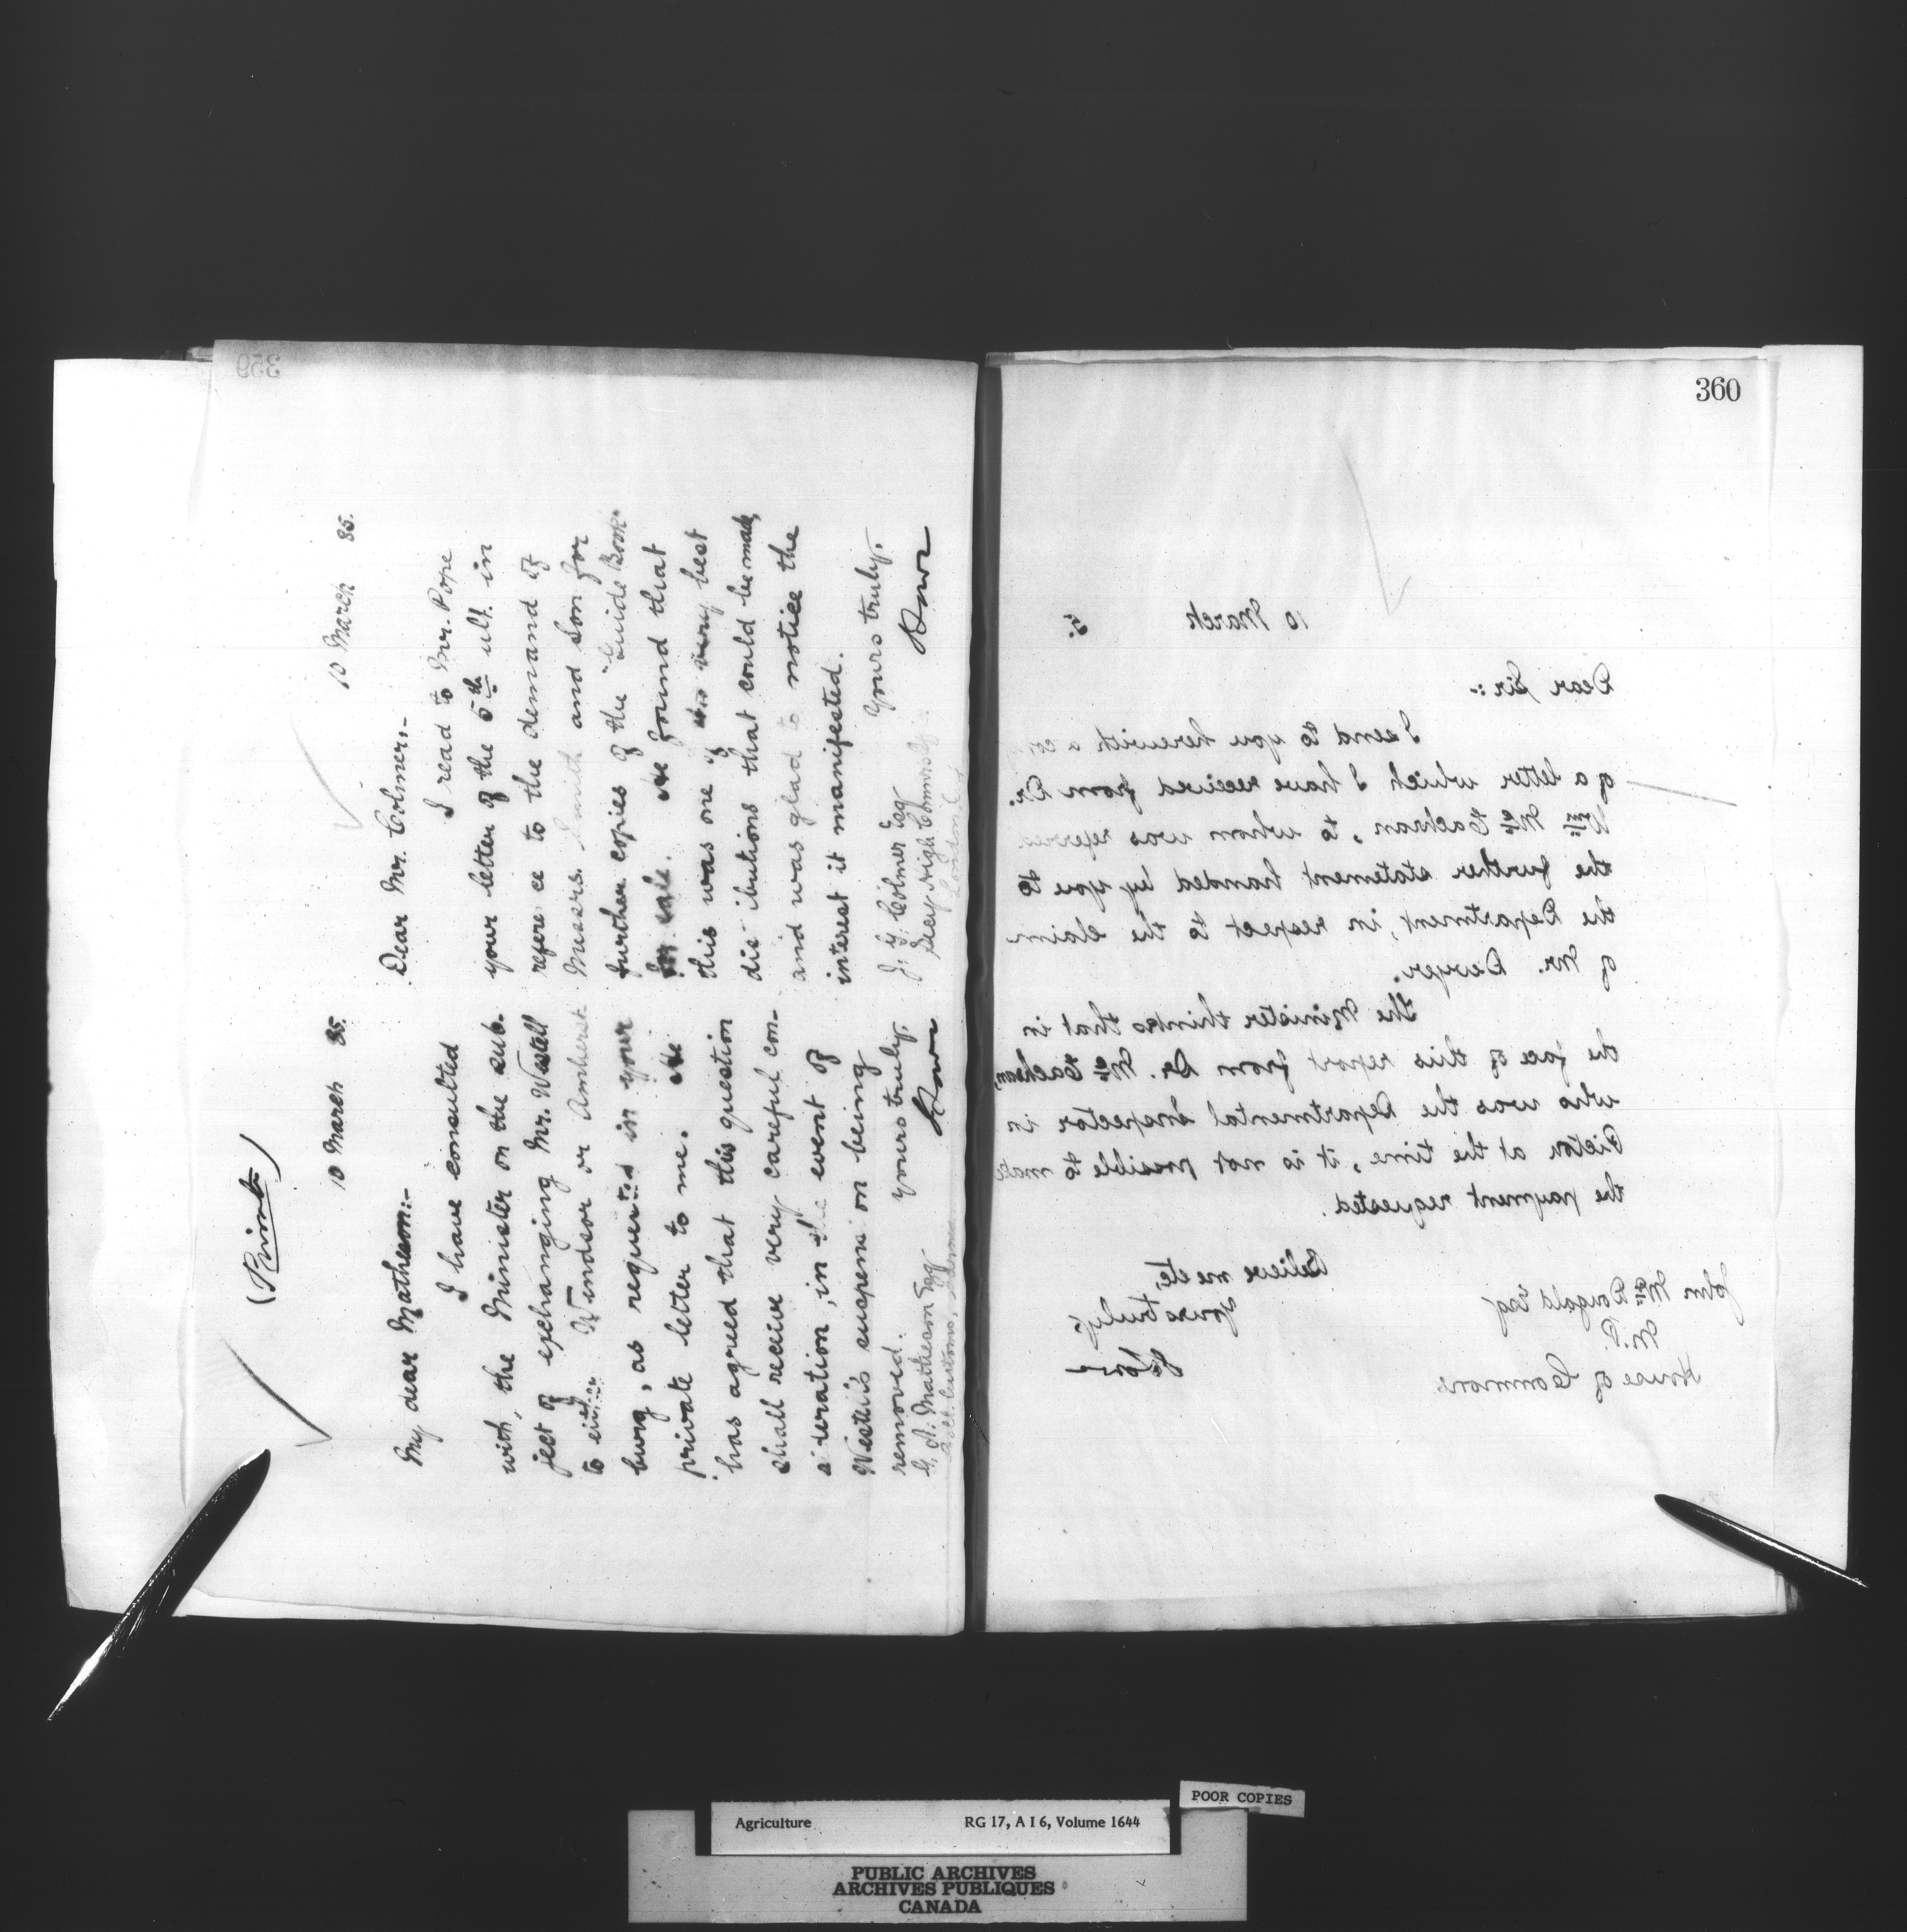 359
(Private)
10 March 85.
My dear Matheson:-
I have consulted
with, the Minister on the sub-
ject of exchanging Mr. Westell
to either Windsor or Amherst
burg, as requested in your
private letter to me. He
has agreed that this question
shall receive very careful con-
sideration, in the event of
Westell's suspension being
removed.
yours truly.
G. A. Matheson Esq
10 March 85.
Dear Mr. Colmer,-
I read to Mr. Pope
your letter of the 5th ult. in
reference to the demand of
Messrs. Smith and Son for
further copies of the "Guide Book"
for sale. He found that
this was one of the very best
distributions that could be made,
and was glad to notice the
interest it manifested.
Yours truly.
J. G. Colmer Esq
Secy High Commrs
London
360
10 March 5.
Dear Sir:-
I send to you herewith a copy
of a letter which I have received from Dr.
Wm McEachran, to whom was referred
the further statement handed by you to
the Department, in respect to the claim
of Mr. Dwyer.
The Minister thinks that in
the face of this report from Dr. McEachran,
who was the Departmental Inspector in
Pictou at the time, it is not possible to make
the payment requested.
Believe me etc,
Yours truly,
John McDougald Esq
M.P.
House of Commons
POOR COPIES
Agriculture RG 17, A I 6, Volume 1644
PUBLIC ARCHIVES
ARCHIVES PUBLIQUES
CANADA